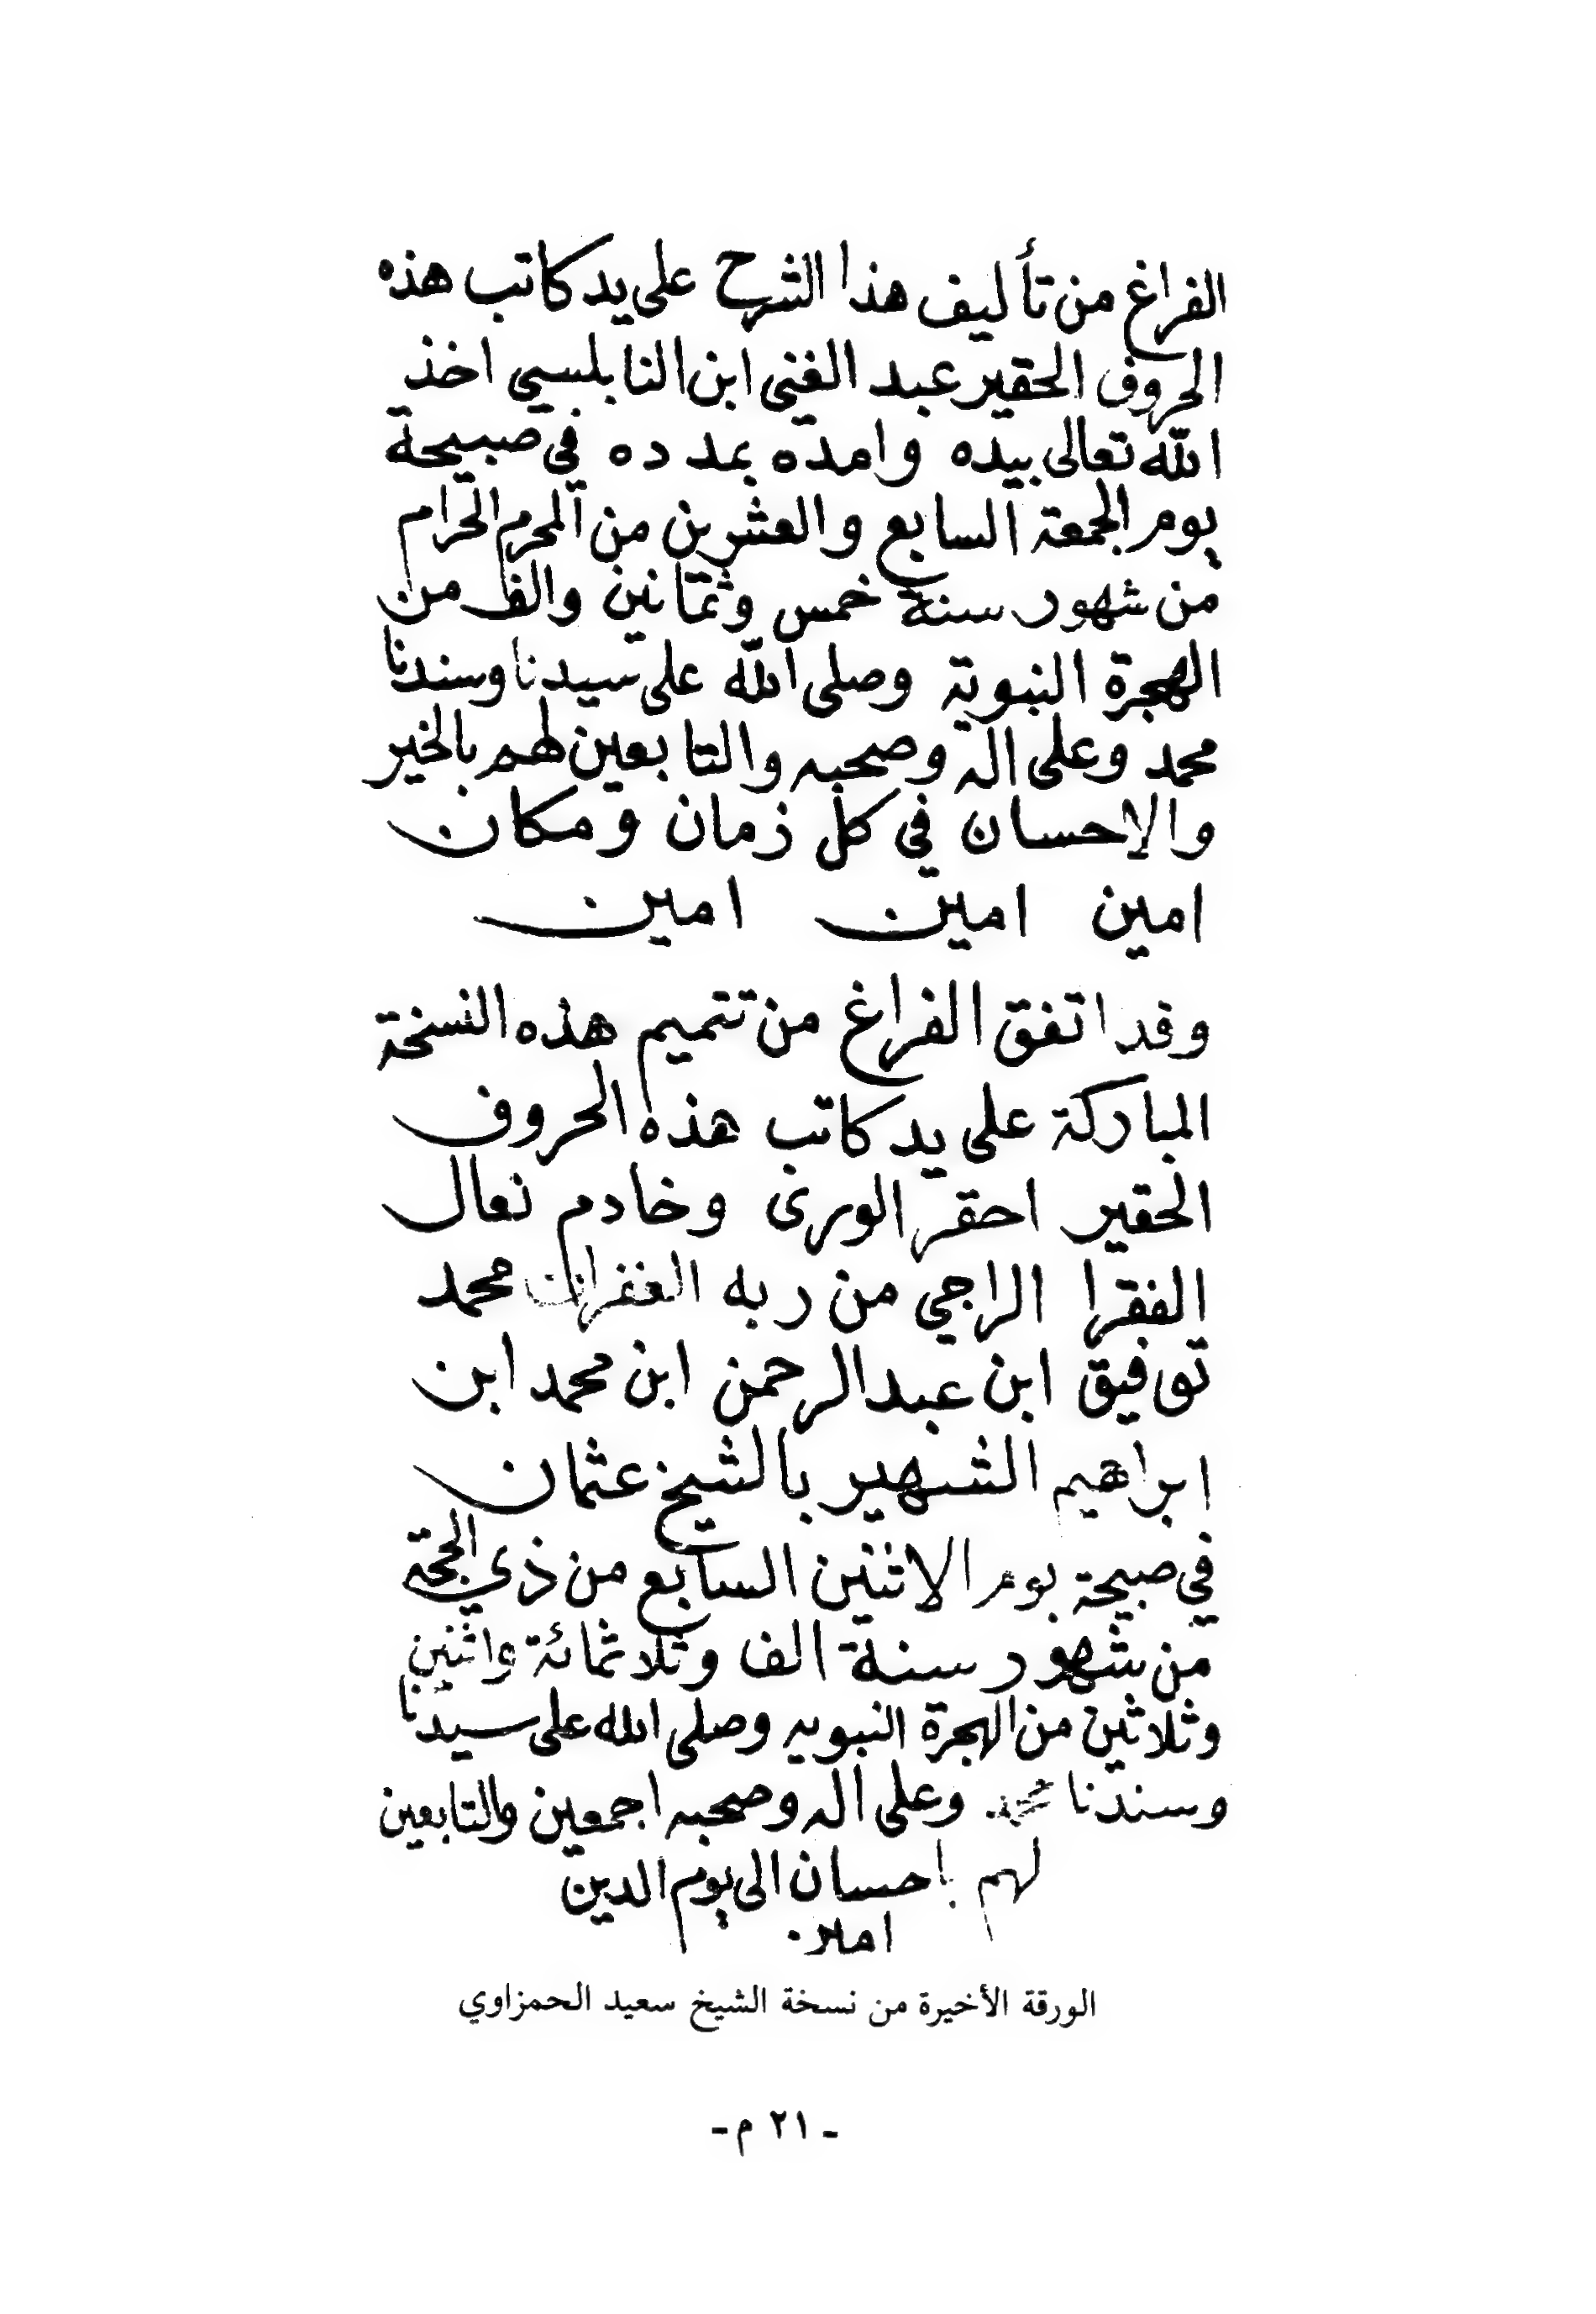 الفراغ من تأليف هذا الشرح على يد كاتب هذه
الحروف الحقير عبد الغني ابن النابلسي اخذ
الله تعالى بيده وامده بمدده في صبيحة
يوم الجمعة السابع والعشرين من المحرم الحرام
من شهور سنة خمس وثمانين والف من
الهجرة النبوية وصلى الله على سيدنا وسندنا
محمد وعلى اله وصحبه والتابعين لهم بالخير
والاحسان في كل زمان ومكان
امين امين امين
وقد اتفق الفراغ من تتميم هذه النسخة
المباركة على يد كاتب هذه الحروف
الحقير احقر الورى وخادم نعال
الفقرا الراجي من ربه الغفران محمد
توفيق ابن عبد الرحمن ابن محمد ابن
ابراهيم الشهير بالشيخ عثمان
في صبيحة يوم الاثنين السابع من ذي الحجة
من شهور سنة الف وثلاثمائة واثنين
وثلاثين من الهجرة النبويه وصلى الله على سيدنا
وسندنا محمد وعلى اله وصحبه اجمعين والتابعين
لهم باحسان الى يوم الدين
امين
الورقة الأخيرة من نسخة الشيخ سعيد الحمزاوي
- ٢١ م -